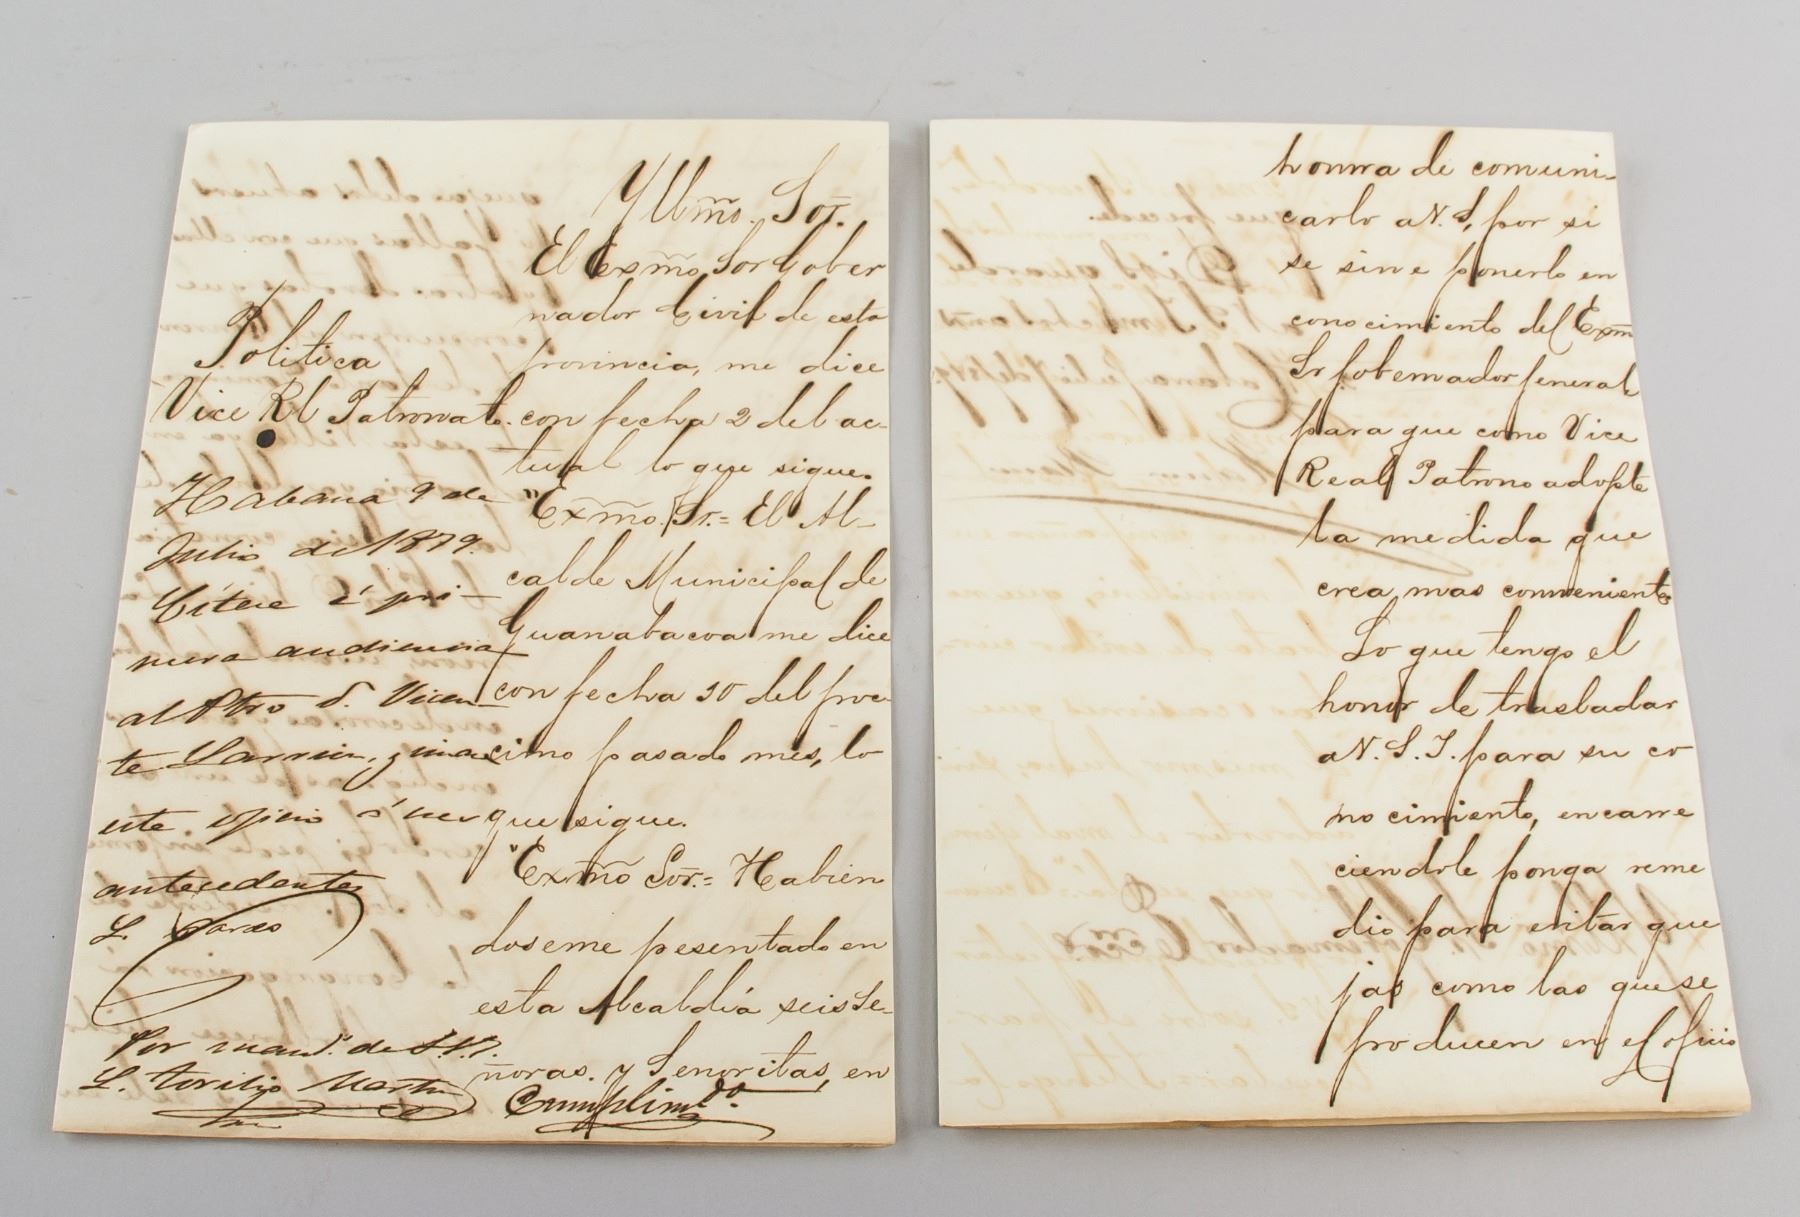 Yllmõ. Sor.
El Exmõ Sor Gober
nador Civil de esta
provincia, me dice
con fecha 2 del ac-
tual lo que sigue.
"Exmõ. Sr.= El Al-
calde Municipal de
Guanabacoa me dice
con fecha 30 del proc-
simo pasado mes, lo
que sigue.
"Exmõ Sor.= Habien
doseme pesentado en
esta Alcaldía seis Se-
ñoras. y Senoritas, en
Politica
Vice Rl Patronato.
Habana 9 de
Julio de 1879.
Cítese á pri-
mera audiencia
al Pbro D. Vicen-
te
este oficio á
antecedentes
Por mand.º de S.S.I.
L. Toribio Martin
Cumplimdo.
honrra de comuni-
carlo a V. S, por si
se sirve ponerlo en
conocimiento del Exm
Sr Gobernador General
para que como Vice
Real Patrono adopte
la medida que
crea mas conveniente
Lo que tengo el
honor de trasladar
a V. S. I. para su co
nocimiento, encarre
ciendole ponga reme
dio para evitar que
jas como las que se
producen en el oficio